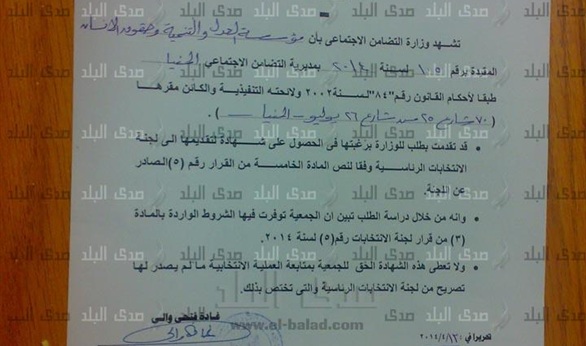 تشهد وزارة التضامن الاجتماعى بأن مؤسسة العدل والتنمية وحقوق الإنسان
المقيدة برقم ١٠٥ لسنة ٢٠١٠ بمديرية التضامن الاجتماعي المنيا
طبقا لأحكام القانون رقم "٨٤" لسنة ٢٠٠٢ ولائحته التنفيذية والكائن مقرها
(٧٠ شارع ٢٥ من شارع ٢٦ يوليو – المنيا).
• قد تقدمت بطلب للوزارة برغبتها فى الحصول على شهادة لتقديمها الى لجنة
الانتخابات الرئاسية وفقا لنص المادة الخامسة من القرار رقم (٥) الصادر
عن اللجنة.
• وانه من خلال دراسة الطلب تبين ان الجمعية توفرت فيها الشروط الواردة بالمادة
(٣) من قرار لجنة الانتخابات رقم (٥) لسنة ٢٠١٤.
• ولا تعطى هذه الشهادة الحق للجمعية بمتابعة العملية الانتخابية ما لم يصدر لها
تصريح من لجنة الانتخابات الرئاسية والتى تختص بذلك.
غادة فتحى والى
تحريرا في ٢٠١٤/٤/١٣
صدى البلد
www.el-balad.com